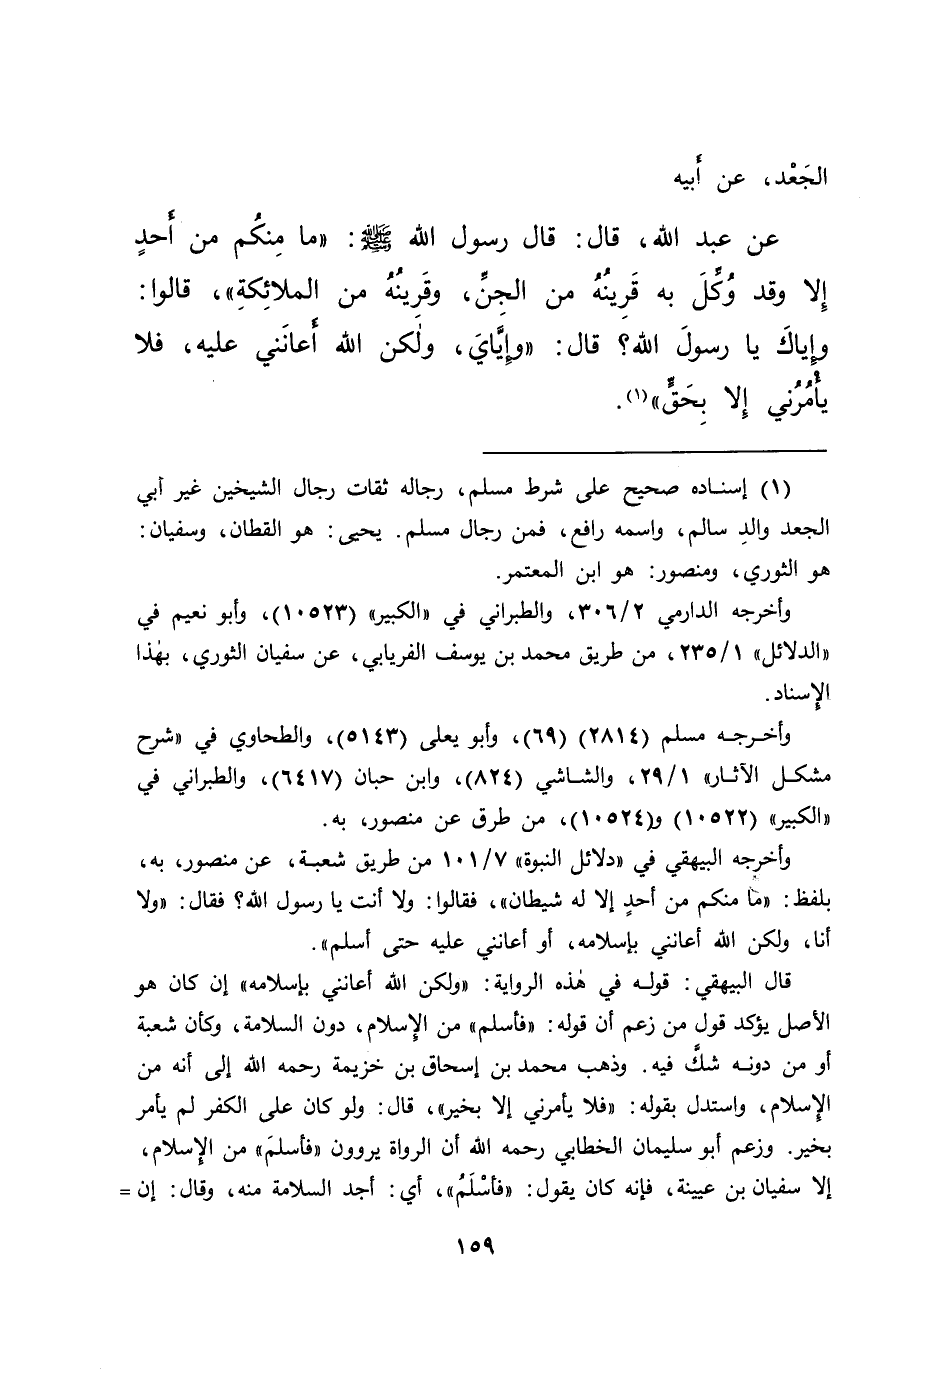 الجَعْد، عن أَبيه
عن عبد الله، قال: قال رسول الله ﷺ: «ما مِنكُم من أَحدٍ
إلا وقد وُكِّلَ به قَرِينُهُ من الجِنِّ، وقَرِينُهُ من الملائِكةِ»، قالوا:
وإِياكَ يا رسولَ الله؟ قال: «وإِيَّايَ، ولٰكن الله أَعانَني عليه، فلا
يأْمُرُني إلا بِحَقٍّ»(١).
(١) إسناده صحيح على شرط مسلم، رجاله ثقات رجال الشيخين غير أبي
الجعد والدِ سالم، واسمه رافع، فمن رجال مسلم. يحيى: هو القطان، وسفيان:
هو الثوري، ومنصور: هو ابن المعتمر.
وأخرجه الدارمي ٣٠٦/٢، والطبراني في «الكبير» (١٠٥٢٣)، وأبو نعيم في
«الدلائل» ٢٣٥/١، من طريق محمد بن يوسف الفريابي، عن سفيان الثوري، بهٰذا
الإسناد.
وأخرجه مسلم (٢٨١٤) (٦٩)، وأبو يعلى (٥١٤٣)، والطحاوي في «شرح
مشكل الآثار» ٢٩/١، والشاشي (٨٢٤)، وابن حبان (٦٤١٧)، والطبراني في
«الكبير» (١٠٥٢٢) و(١٠٥٢٤)، من طرق عن منصور، به.
وأخرجه البيهقي في «دلائل النبوة» ١٠١/٧ من طريق شعبة، عن منصور، به،
بلفظ: «ما منكم من أحدٍ إلا له شيطان»، فقالوا: ولا أنت يا رسول الله؟ فقال: «ولا
أنا، ولكن الله أعانني بإسلامه، أو أعانني عليه حتى أسلم».
قال البيهقي: قوله في هٰذه الرواية: «ولكن الله أعانني بإسلامه» إن كان هو
الأصل يؤكد قول من زعم أن قوله: «فأسلم» من الإسلام، دون السلامة، وكأن شعبة
أو من دونه شكَّ فيه. وذهب محمد بن إسحاق بن خزيمة رحمه الله إلى أنه من
الإسلام، واستدل بقوله: «فلا يأمرني إلا بخير»، قال: ولو كان على الكفر لم يأمر
بخير. وزعم أبو سليمان الخطابي رحمه الله أن الرواة يروون «فأسلمَ» من الإسلام،
إلا سفيان بن عيينة، فإنه كان يقول: «فأسْلَمُ»، أي: أجد السلامة منه، وقال: إن =
١٥٩